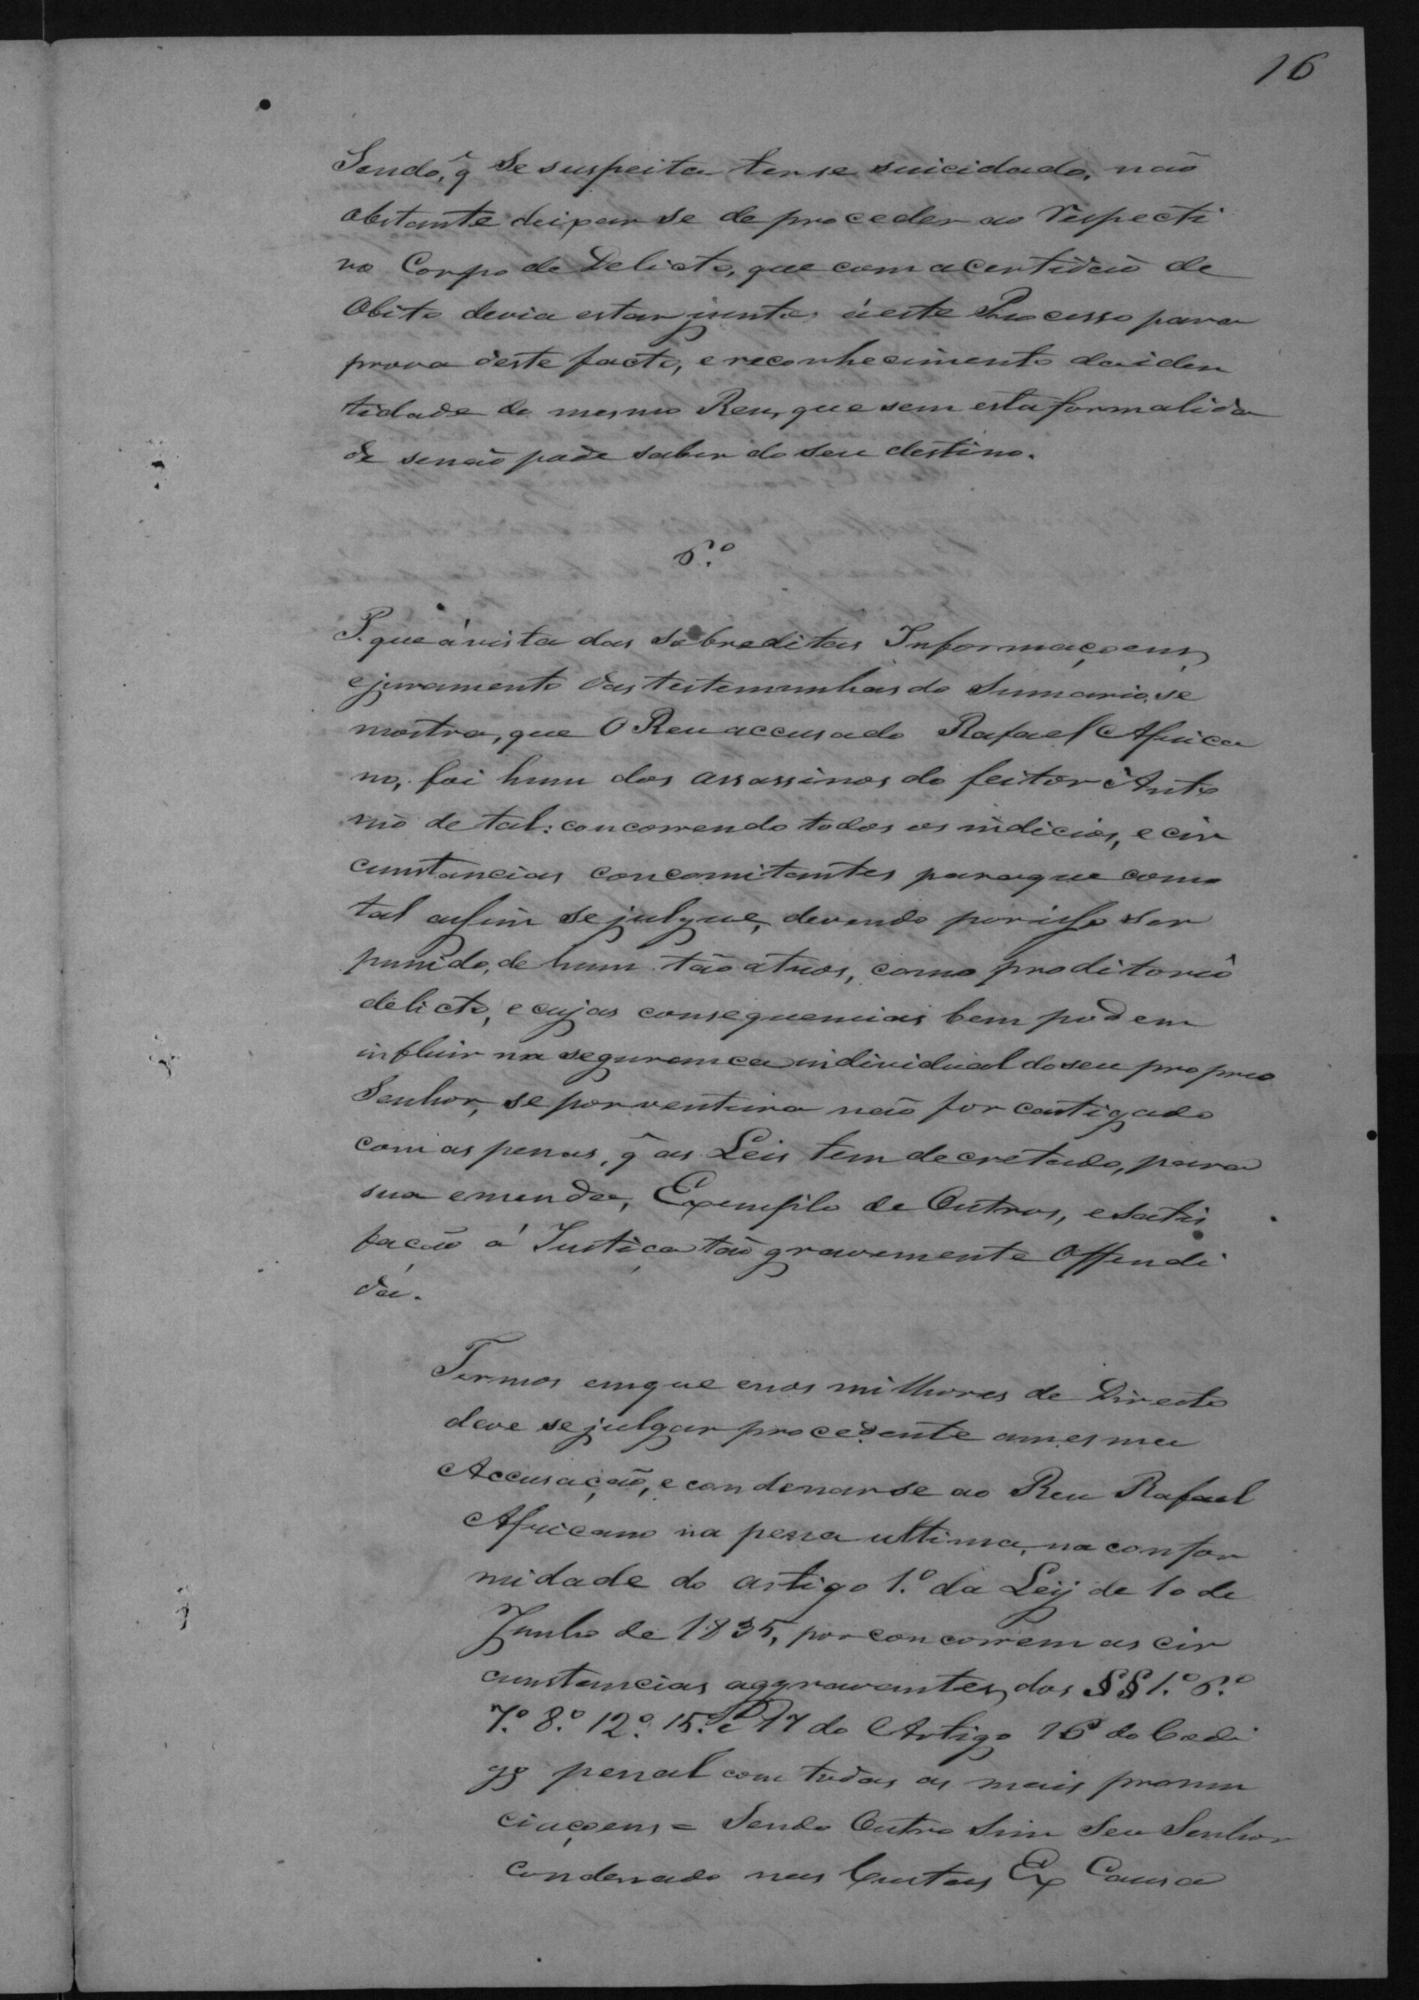 16
Sendo, q̃ se suspeita terse suicidado, não
obstante deixar se de proceder ao respecti
vo Corpo de Delicto, que com a certidão de
Obito devia estar junto, á este Processo para
prova deste facto, e reconhecimento da iden
tidade do mesmo Reu, que sem esta formalida
de senão pode saber do seu destino.
6.º
P. que á vista das sobreditas Informaçoens,
e juramento das testemunhas do Sumario, se
mostra, que O Reu accusado Rafael Africa
no, foi hum dos assassinos do feitor Anto
nio de tal: concorrendo todos os indicios, e cir
cunstancias concomitantes paraque como
tal assim se julgue, devendo por isso ser
punido, de hum tão atros, como proditorio
delicto, e cujas consequencias bem podem
influir na seguranca individual do seu proprio
Senhor, se porventura não for castigado
com as penas, q̃ as Leis tem decretado, para
sua emenda, Exemplo de Outros, e satis
fação á Justiça tão gravemente Offendi
da.
Termos emque enos milhores de Direito
deve se julgar procedente amesma
Accusação, e condenarse ao Reu Rafael
Africano na pena ultima, na confor
midade do artigo 1.º da Ley de 10 de
Junho de 1835, por concorrem as cir
cunstancias aggravantes, dos §§ 1.º 6.º
7.º 8.º 12.º 15.º e 17 do Artigo 16 do Codi
go penal com todas as mais pronun
ciaçoens = Sendo Outro sim Seu Senhor
condenado nas Custas Ex Causa